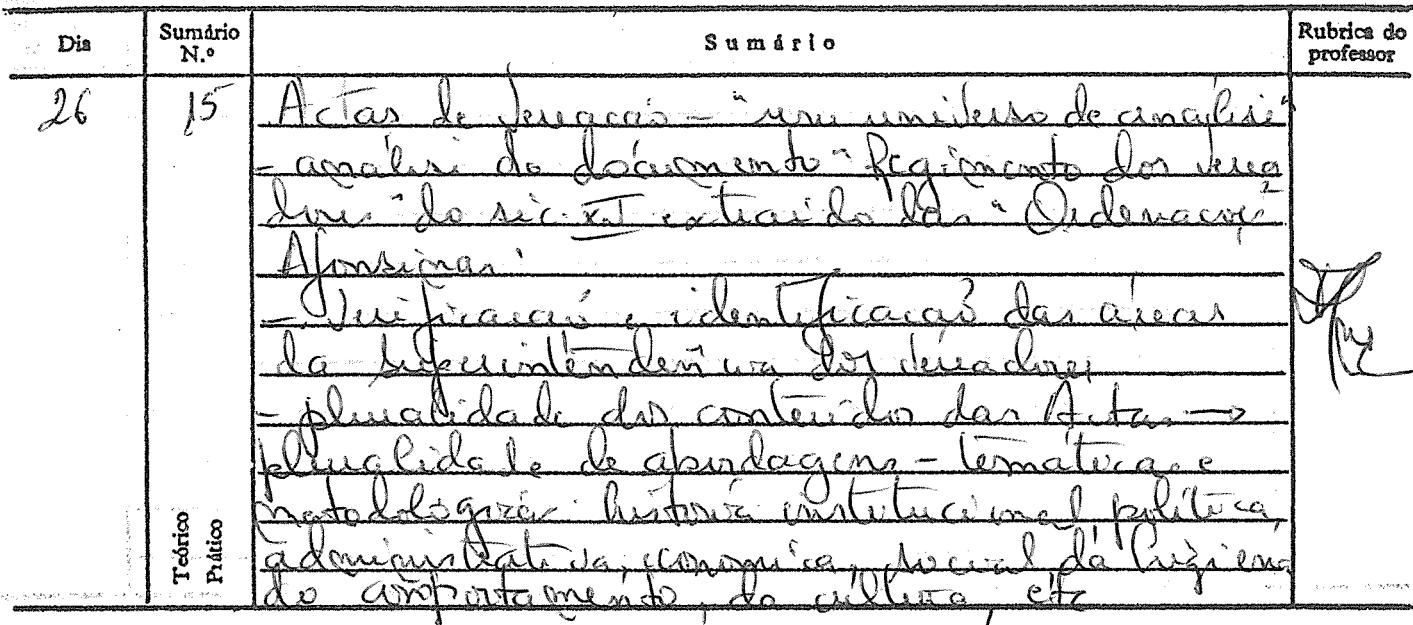 Dia
Sumário N.º
Sumário
Rubrica do professor
26
15
Actas de Vereação - "um universo de análise"
- análise do documento "Regimento dos verea
dores" do séc. XV extraído das "Ordenações
Afonsinas"
- Verificação e identificação das áreas
da superintendência dos vereadores
- pluralidade dos conteúdos das Actas →
pluralidade de abordagens - temáticas e
metodológicas história institucional política,
administrativa, económica, social da higiene
do comportamento, da cultura etc
Teórico
Prático